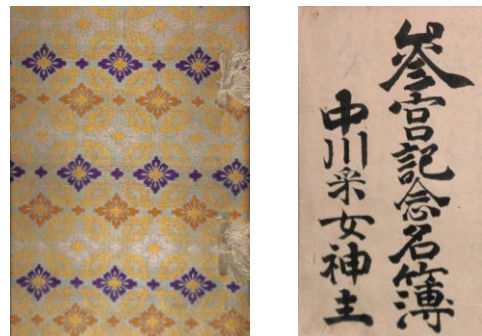 参宮記念名簿
中川采女神主